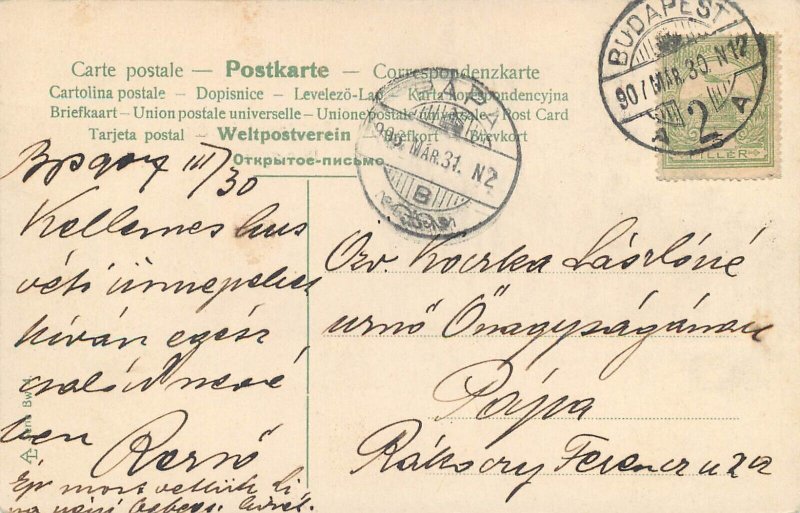 Carte postale — Postkarte — Correspondenzkarte
Cartolina postale – Dopisnice – Levelező-La Karta korespondencyjna
Briefkaart – Union postale universelle – Unione postale universale – Post Card
Tarjeta postal – Weltpostverein Brefkort – Brevkort
Открытое-письмо
BUDAPEST
907 MÁR. 30 N12
A 2 A
FILLER
PÁPA
MÁR. 31. N2
B
III/30
Kellemes hús
véti ünnepeket
kíván egész
családd nevé
ben
Özv. Koczka Lászlóné
urnő Őnagyságának
Pápa
Rákóczy Ferencz u
Ép most